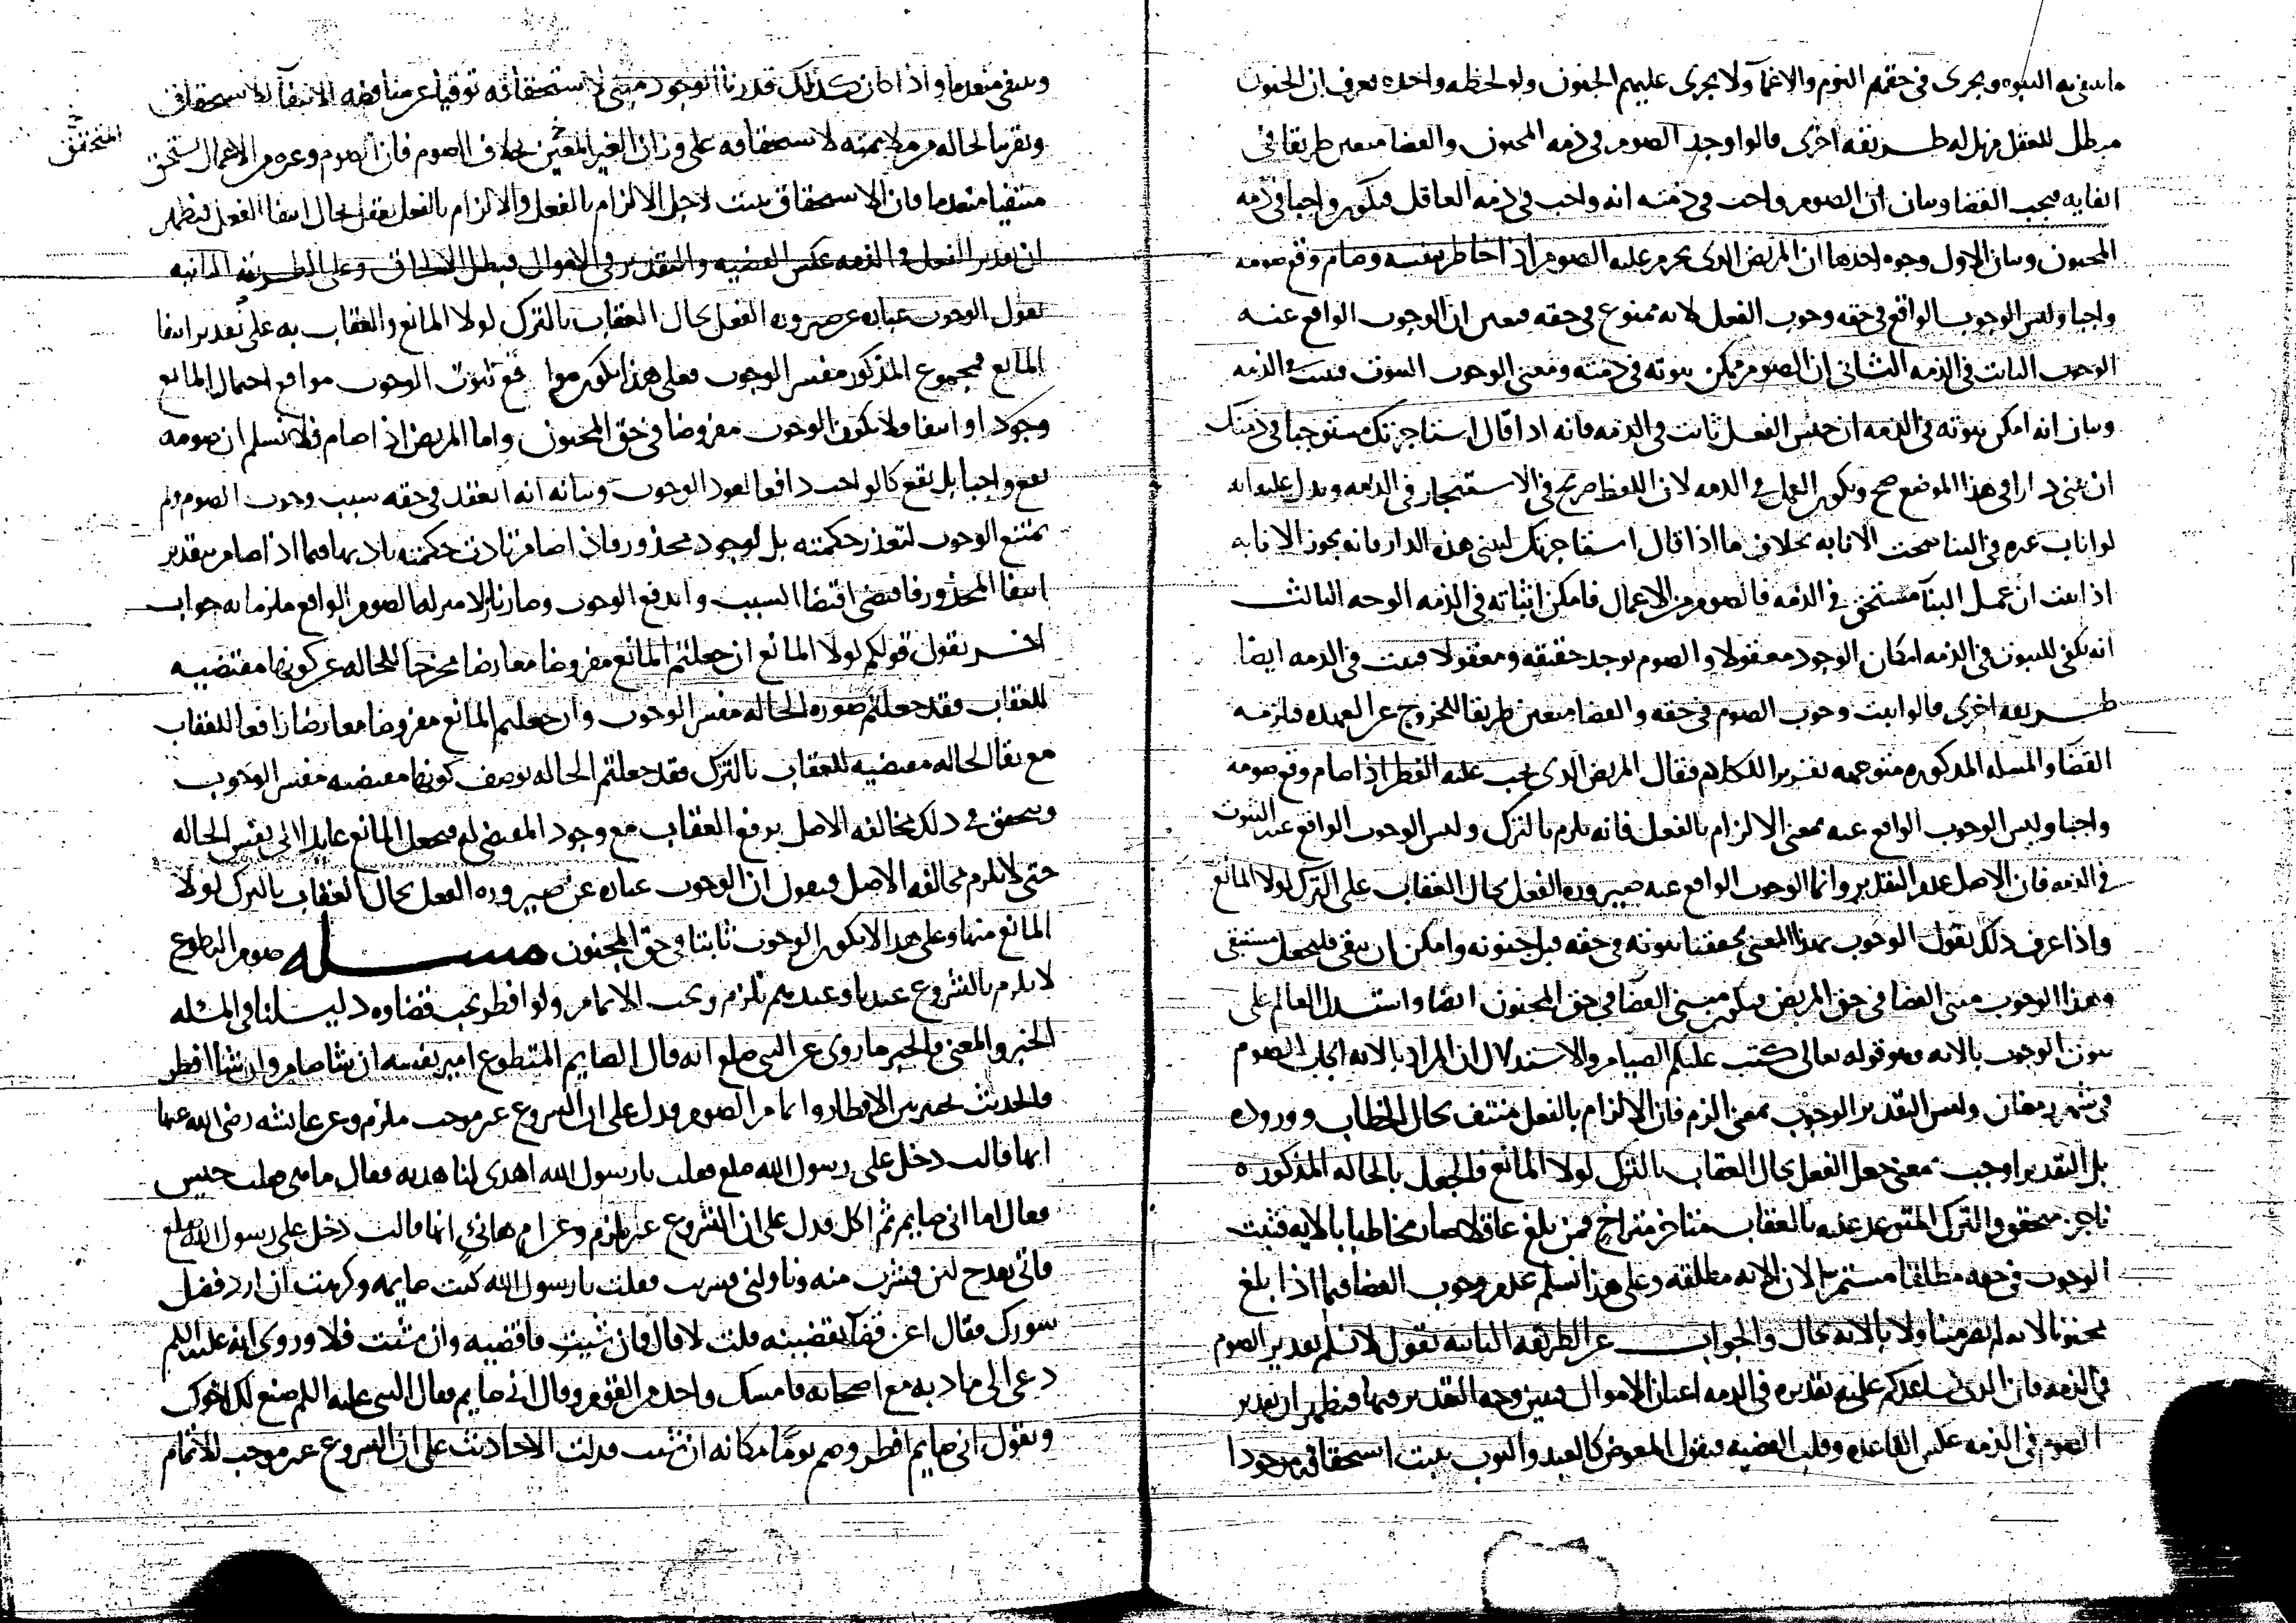 ما ينفى به النبوه ويجرى في حقهم النوم والاغمآ ولا يجرى عليهم الجنون ولو لحظه واحده نعرف ان الجنون
مبطل للعقل مزيل له طريقه اخرى قالوا وجد الصوم في ذمه المجنون والقضا متعين طريقا في
ايفايه فيجب القضا وبيان ان الصوم واجب في ذمته انه واجب في ذمه العاقل فيكون واجبا في ذمه
المجنون وبيان الاول وجوه احدها ان المريض الذى يحرم عليه الصوم اذا خاطر بنفسه وصام وقع صومه
واجبا وليس الوجوب الواقع في حقه وجوب الفعل لانه ممنوع في حقه فتعين ان الوجوب الواقع عنه
الوجوب الثابت في الذمه الثانى ان الصوم يمكن ثبوته في ذمته ومعنى الوجوب الثبوت فيثبت في الذمه
وبيان انه امكن ثبوته في الذمه ان جنس الفعل ثابت في الذمه فانه اذا قال استاجرتك مستوجبا في ذمتك
ان تبنى دارا في هذا الموضع صح ويكون العمل في الذمه لان اللفظ صريح في الاستيجار في الذمه ويدل عليه انه
لو اناب غيره في البنا صحت الانابه بخلاف ما اذا قال استاجرتك لتبنى هذه الدار فانه يجوز الانابه
اذا ثبت ان عمل البنآ مستحق في الذمه فالصوم من الاعمال فامكن اثباته في الذمه الوجه الثالث
انه يكفى للثبوت في الذمه امكان الوجود معقولا والصوم يوجد حقيقه ومعقولا فيثبت في الذمه ايضا
طريقه اخرى قالوا ثبت وجوب الصوم في حقه والقضا متعين طريقا للخروج عن العهده فيلزمه
القضا والمسله المذكوره متوجهه تقرير الكلام فقال المريض الذى يجب عليه الفطر اذا صام وقع صومه
واجبا وليس الوجوب الواقع عنه بمعنى الالزام بالفعل فانه يلزم بالترك وليس الوجوب الواقع عنه الثبوت
في الذمه فان الاصل عدم التقدير وانما الوجوب الواقع عنه صيروره الفعل بحال العقاب على الترك لولا المانع
واذا عرف ذلك نقول الوجوب بهذا المعنى تحققنا ثبوته في حقه قبل جنونه وامكن ان يبقى فليجعل مستبقى
وهذا الوجوب مبنى القضا في حق المريض فيكون مبنى القضا في حق المجنون ايضا واستدل العالم على
ثبوت الوجوب بالايه وهو قوله تعالى كتب عليكم الصيام والاستدلال ان المراد بالايه ايجاب الصوم
في شهر رمضان وليس التقدير الوجوب بمعنى الزم فان الالزام بالفعل منتف بحال الخطاب ووروده
بل التقدير اوجب بمعنى جعل الفعل بحال العقاب بالترك لولا المانع فالجعل بالحاله المذكوره
ناجز متحقق والترك المتوعد عليه بالعقاب متاخر متراخ فمن بلغ عاقلا صار مخاطبا بالايه فيثبت
الوجوب في حقه مطلقا مستمرا لان الايه مطلقه وعلى هذا نسلم عدم وجوب القضا فيما اذا بلغ
مجنونا لانه لم يصر متناولا بالايه بحال والجواب عن الطريقه الثانيه نقول لا نسلم تقدير الصوم
في الذمه فان الذى نساعدكم على تقديره في الذمه اعيان الاموال ونبين وجه التقدير فيها فيظهر ان تقدير
الصوم في الذمه عكس القاعده وقلب القضيه فنقول المعوض كالعبد والثوب يثبت استحقاقه موجودا
وينفى منعدما واذا كان كذلك قدرنا الوجود مبنى لاستحقاقه توقيا عن مناقضه الانتفآ للاستحقاق
وتقريبا لحاله من ملايمته لاستحقاقه على وزان الغير المعين بخلاف الصوم فان الصوم وغيره من الاعمال يستحق
المتحقق
منتفيا منعدما فان الاستحقاق يثبت لاجل الالزام بالفعل والالزام بالفعل يعقل بحال انتفا الفعل فيظهر
ان تقدير الفعل في الذمه عكس القضيه والتقدير في الاموال فيبطل الالحاق وعلى الطريقه الثانيه
نقول الوجوب عباره عن صيروره الفعل بحال العقاب بالترك لولا المانع والعقاب به على تقدير انتفا
المانع فمجموع المذكور مفسر الوجوب فعلى هذا يكون موا قع ثبوت الوجوب مواقع احتمال المانع
وجودا وانتفا ولا يكون الوجوب مفروضا في حق المجنون واما المريض اذا صام فلا نسلم ان صومه
يقع واجبا بل يقع كالواجب دافعا لعود الوجوب وبيانه انه انعقد في حقه سبب وجوب الصوم ولم
يمتنع الوجوب لتعذر حكمته بل لوجود محذور فاذا صام تادت حكمته باديها فيما اذا صام بتقدير
انتفا المحذور فاقتضى اقتضا السبب واندفع الوجوب وصار نازلا منزله الصوم الواقع ملزما به جواب
اخر نقول قولكم لولا المانع ان جعلتم المانع مفروضا معارضا مخرجا للحاله عن كونها مقتضيه
للعقاب فقد جعلتم صوره الحاله مفسر الوجوب وان جعلتم المانع مفروضا معارضا رافعا للعقاب
مع بقا الحاله مقتضيه للعقاب بالترك فقد جعلتم الحاله بوصف كونها مقتضيه مفسر الوجوب
ويتحقق في ذلك مخالفه الاصل برفع العقاب مع وجود المقتضى له فيجعل المانع عايدا الى نفس الحاله
حتى لا يلزم مخالفه الاصل فيقول ان الوجوب عباره عن صيروره الفعل بحال العقاب بالترك لولا
المانع منها وعلى هذا لا يكون الوجوب ثابتا في حق المجنون مسله صوم التطوع
لا يلزم بالشروع عندنا وعندهم يلزم ويجب الاتمام ولو افطر يجب قضاوه دليلنا في المسئله
الخبر والمعنى والخبر ما روى عن النبى صلع انه قال الصايم المتطوع امير نفسه ان شا صام وان شا افطر
والحديث تخيير بين الافطار واتمام الصوم فدل على ان الشروع غير موجب ملزم وعن عائشه رضى الله عنها
انها قالت دخل على رسول الله صلع فقلت يارسول الله اهدى لنا هديه فقال ما هى قلت حيس
فقال اما انى صايم ثم اكل فدل على ان الشروع غير ملزم وعن ام هانئ انها قالت دخل على رسول الله صلع
فاتى بقدح لبن فشرب منه وناولنى فشربت فقلت يارسول الله كنت صايمه وكرهت ان ارد فضل
سورك فقال اعن قضآ تقضينه قلت لا قال فان شيت فاقضيه وان شئت فلا وروى انه عليه السلم
دعى الى مادبه مع اصحابه فامسك واحد من القوم وقال انى صايم فقال النبى عليه السلم صنع لك اخوك
وتقول انى صايم افطر وصم يوما مكانه ان شيت فدلت الاحاديث على ان الشروع غير موجب للاتمام